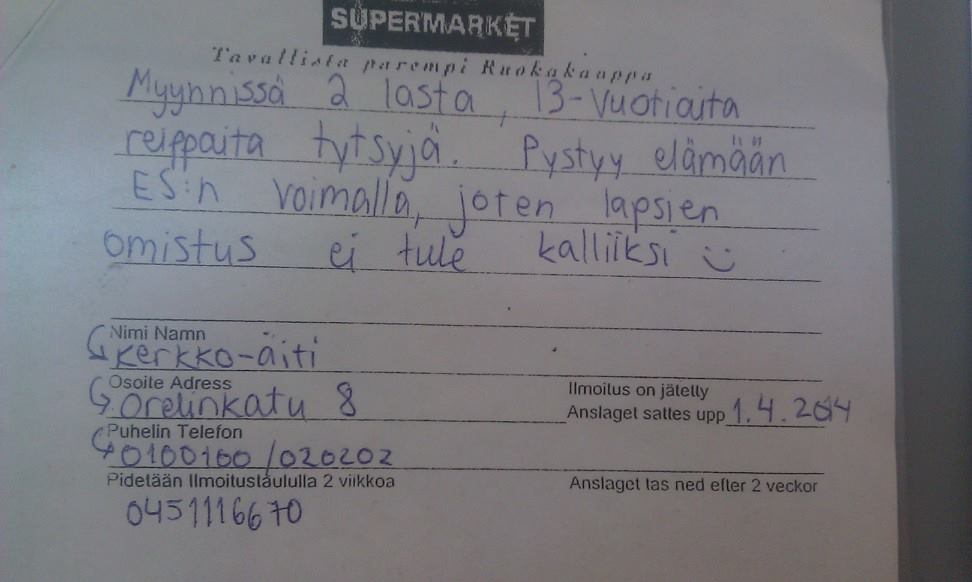 SUPERMARKET
Tavallista parempi Ruokakauppa
Myynnissä 2 lasta, 13-vuotiaita
reippaita tytsyjä. Pystyy elämään
ES:n voimalla, joten lapsien
omistus ei tule kalliiksi :)
Nimi Namn
Kerkko-äiti
Osoite Adress
Orelinkatu 8
Ilmoitus on jätelty
Anslaget sattes upp 1.4.2014
Puhelin Telefon
0100100/020202
Pidetään Ilmoitustaululla 2 viikkoa
Anslaget tas ned efter 2 veckor
0451116670